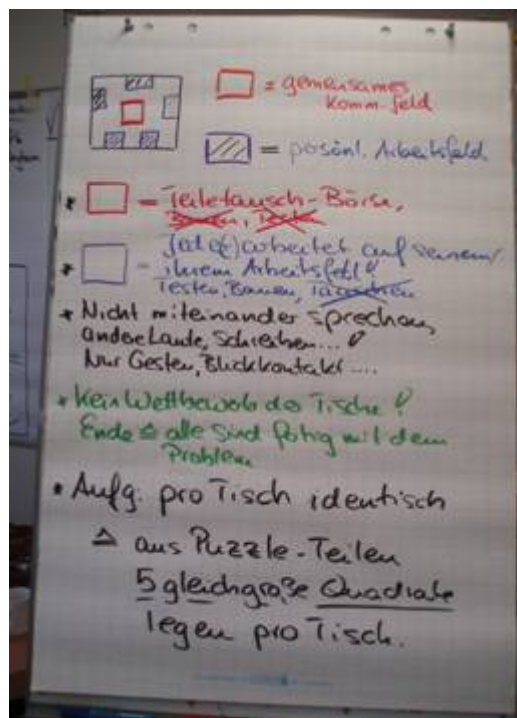 = gemeinsames
Komm-feld
= persönl. Arbeitsfeld
* = Teiletausch-Börse,
Bauen, Testen
* = Jed(e) arbeitet auf seinem/
ihrem Arbeitsfeld!
Testen, Bauen, Tauschen
* Nicht miteinander sprechen,
andere Laute, Schreiben...!
Nur Gesten, Blickkontakt....
* Kein Wettbewerb der Tische!
Ende ≙ alle sind fertig mit dem
Problem
• Aufg. pro Tisch identisch
≙ aus Puzzle-Teilen
5 gleichgroße Quadrate
legen pro Tisch.